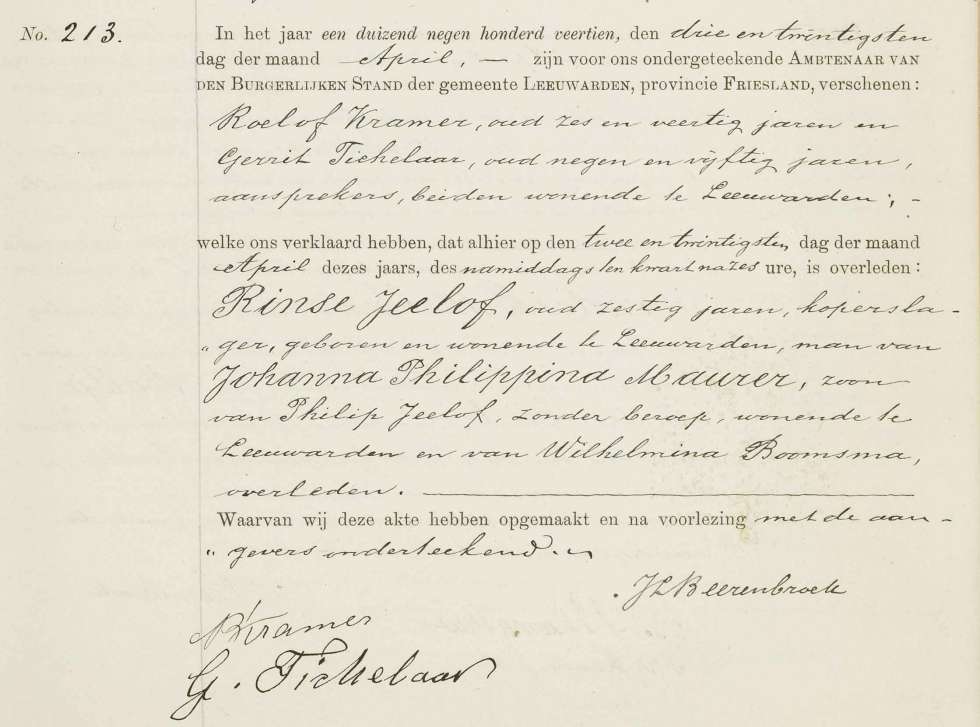 No. 213.
In het jaar een duizend negen honderd veertien, den drie en twintigsten
dag der maand April, — zijn voor ons ondergeteekende Ambtenaar van
den Burgerlijken Stand der gemeente Leeuwarden, provincie Friesland, verschenen:
Roelof Kramer, oud zes en veertig jaren en
Gerrit Tichelaar, oud negen en vijftig jaren,
aansprekers, beiden wonende te Leeuwarden; -
welke ons verklaard hebben, dat alhier op den twee en twintigsten dag der maand
April dezes jaars, des namiddags ten kwart na zes ure, is overleden:
Rinse Jeelof, oud zestig jaren, kopersla-
„ ger, geboren en wonende te Leeuwarden, man van
Johanna Philippina Maurer, zoon
van Philip Jeelof, zonder beroep, wonende te
Leeuwarden en van Wilhelmina Boomsma,
overleden. —
Waarvan wij deze akte hebben opgemaakt en na voorlezing met de aan-
„ gevers onderteekend.
JLBeerenbroek
RKramer
G. Tichelaar